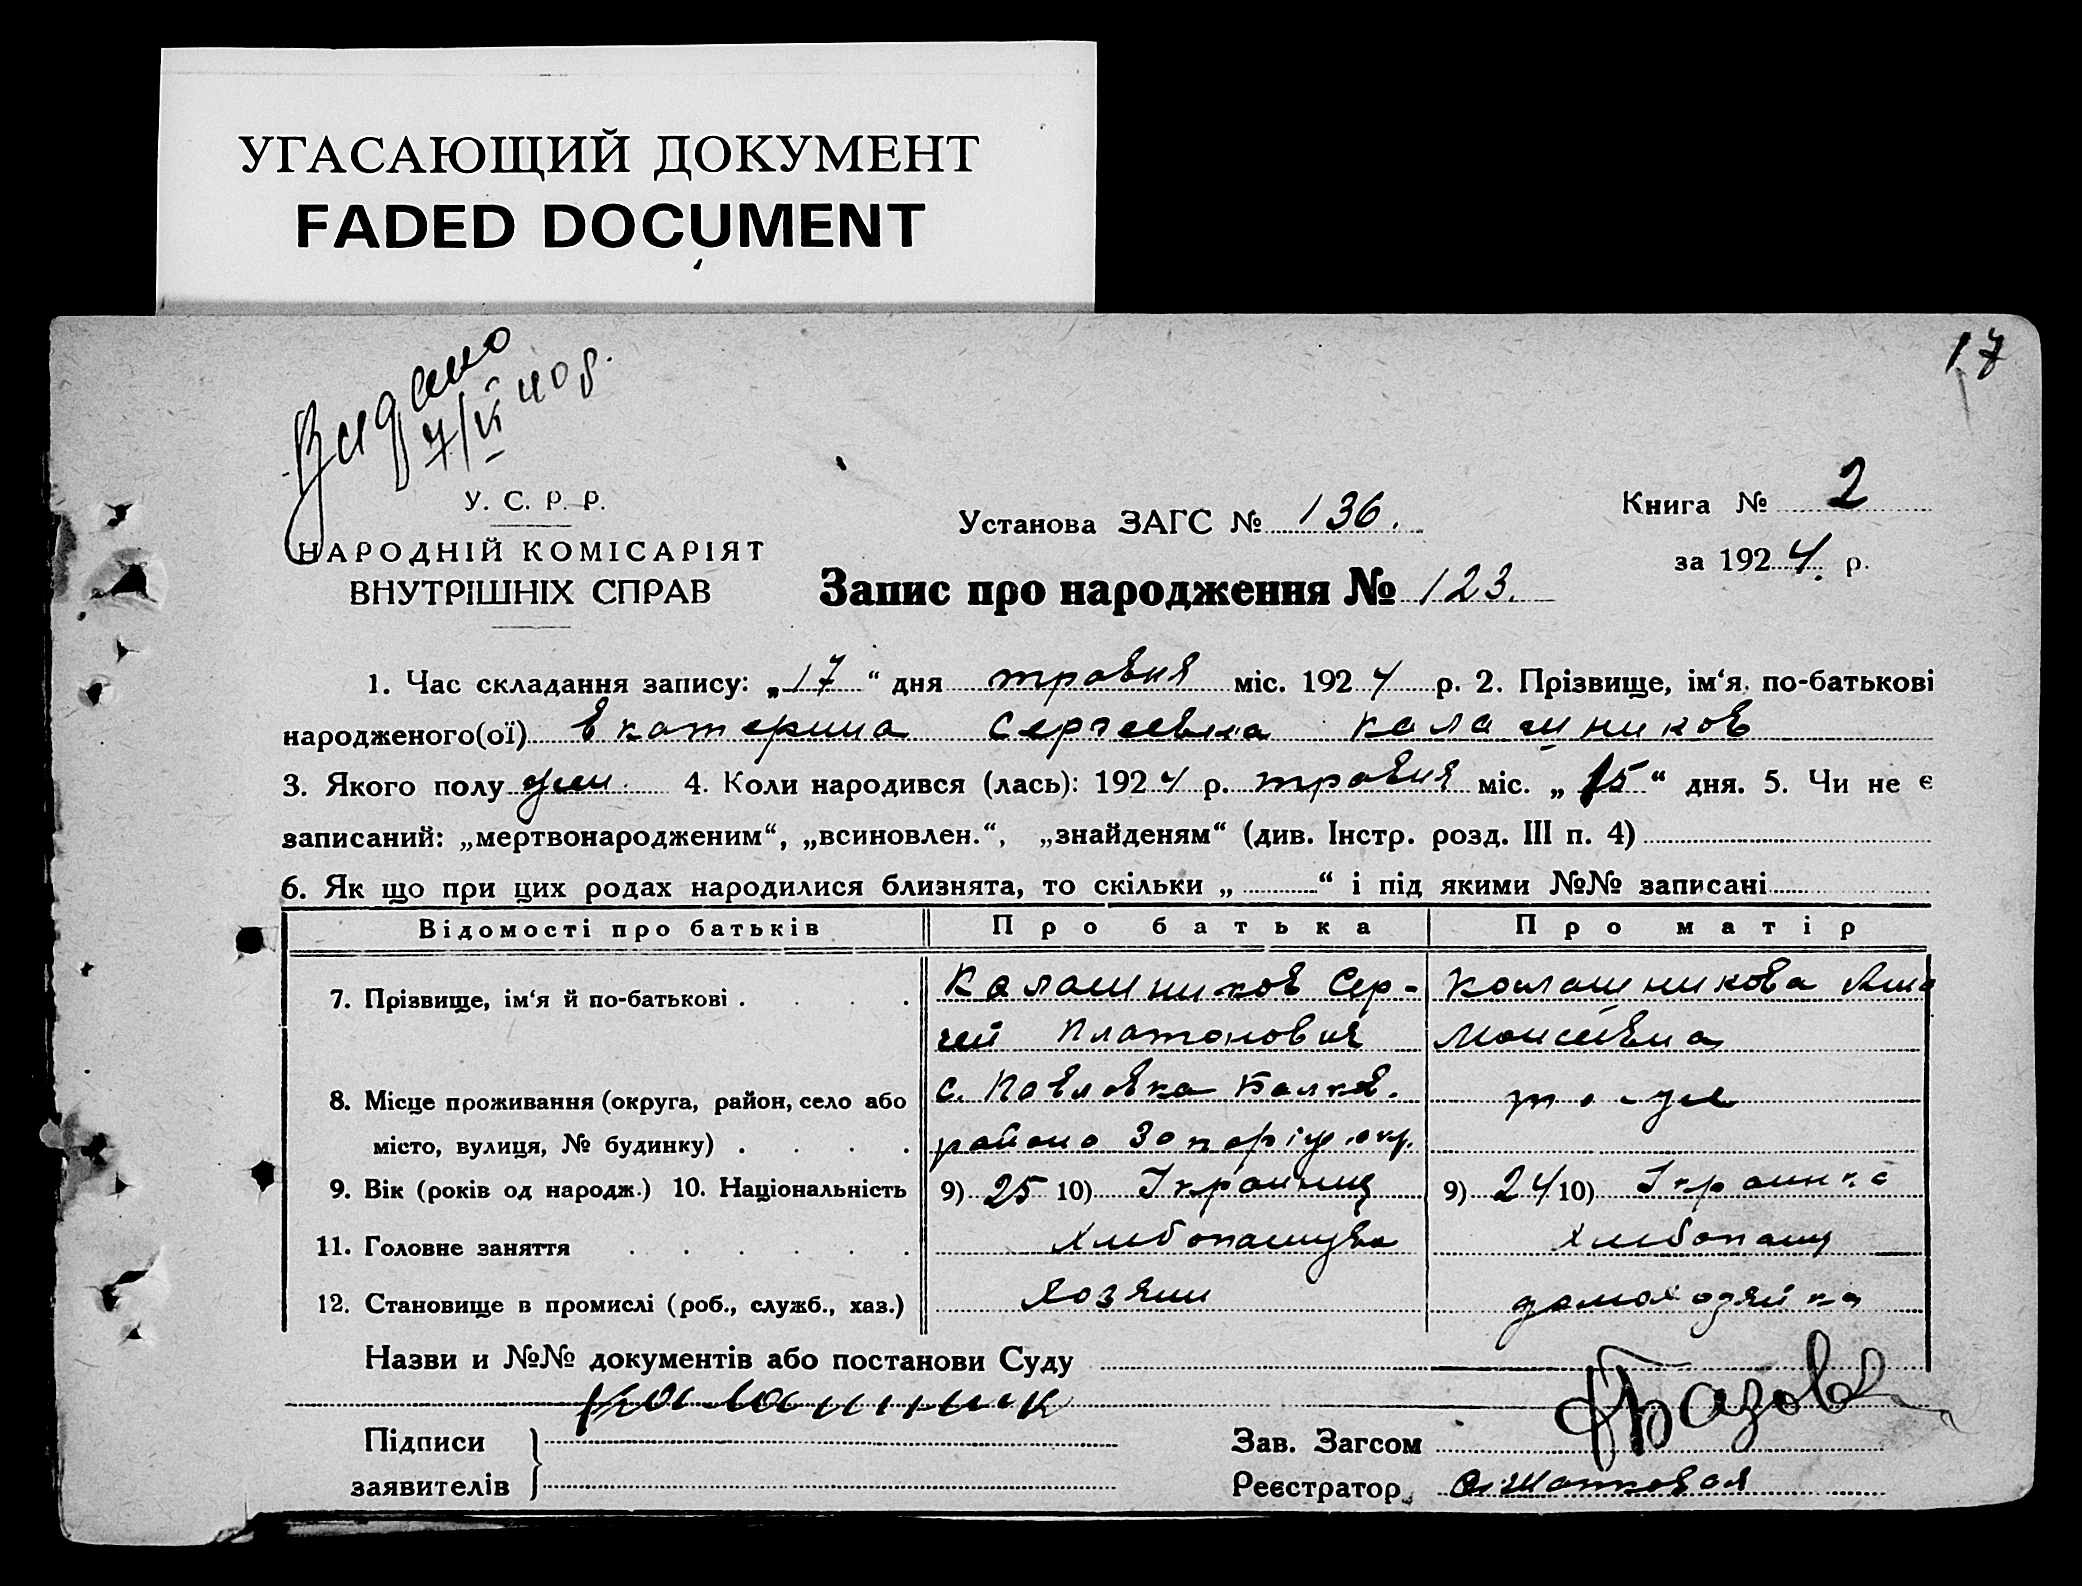 УГАСАЮЩИЙ ДОКУМЕНТ
FADED DOCUMENT
17
Видано
7/VI
У. С. Р. Р.
НАРОДНІЙ КОМІСАРІЯТ
ВНУТРІШНІХ СПРАВ
Установа ЗАГС № 136.
Книга № 2
за 1924. р.
Запис про народження № 123.
1. Час складання запису: „17“ дня травня міс. 1924 р. 2. Прізвище, ім‘я, по-батькові
народженого(ої) Екатерина Сергеевна Калашников
3. Якого полу жен. 4. Коли народився (лась): 1924 р. травня міс. „15“ дня. 5. Чи не є
записаний: „мертвонародженим“, „всиновлен.“, „знайденям“ (див. Інстр. розд. III п. 4)
6. Як що при цих родах народилися близнята, то скільки „ “ і під якими №№ записані
Відомості про батьків Про батька Про матір
7. Прізвище, ім‘я й по-батькові . . . . Калашников Сер- Калашникова Анна
гей Платонович Моисеевна
8. Місце проживання (округа, район, село або с. Павловка Балков. то-же
місто, вулиця, № будинку) . . . . района Запоріж. окр.
9. Вік (років од народж.) 10. Національність 9) 25 10) Українец 9) 24 10) Українка
11. Головне заняття . . . . . . Хлебопашество Хлебопаш
12. Становище в промислі (роб., служб., хаз.) Хозяин домохозяйка
Назви и №№ документів або постанови Суду
Калашников
Підписи
заявителів
Зав. Загсом
Реєстратор